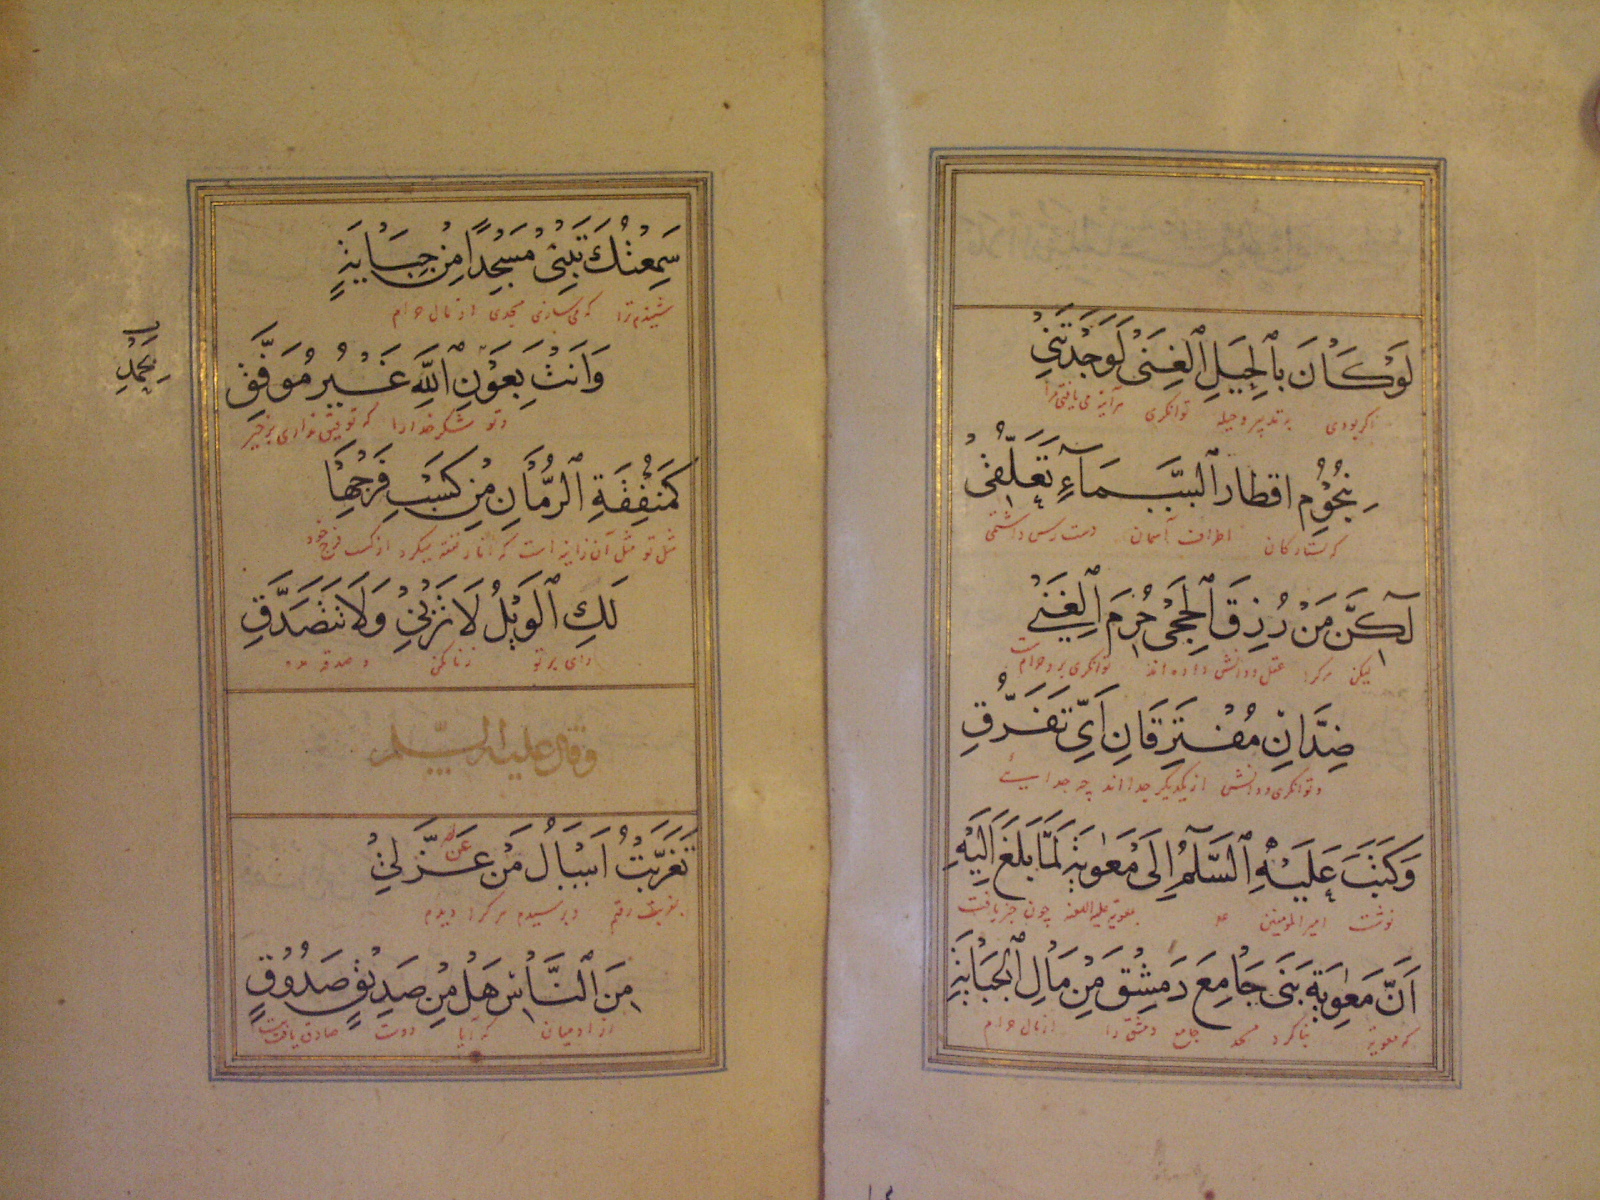 لَوْ كَانَ بِالْحِيَلِ الْغِنَى لَوَجَدْتَنِي
اگر بودی بتدبیر و حیله توانگری هر آینه می یافتی مرا
بِنُجُومِ اقطار السَّمَاءِ تَعَلُّقِی
که بستارگان اطراف آسمان دست رس داشتمی
لٰكِنَّ مَنْ رُزِقَ الْحِجَى حُرِمَ الْغِنَى
لیکن هر که را عقل و دانش داده اند توانگری برو حرام است
ضِدَّانِ مُفْتَرِقَانِ اَيَّ تَفَرُّقِ
و توانگری و دانش از یکدیگر جدااند چه جدایی
وَكَتَبَ عَلَيْهِ السَّلَامُ اِلَى مَعٰوِيَةَ لَمَّا بَلَغَ اِلَيْهِ
نوشت امیر المومنین بمعویه علیه اللعنه چون خبر یافت
اَنَّ مَعٰوِيَةَ بَنَى جَامِعَ دَمِشْقَ مِنْ مَالِ الْجَبَايَةِ
که معویه بنا کرد مسجد جامع دمشق را از مال حرام
سَمِعْتُكَ تَبْنِي مَسْجِدًا مِنْ جِبَايَةٍ
شنیدم ترا که می سازی مسجدی از مال حرام
وَاَنْتَ بِعَوْنِ اللّٰهِ غَيْرُ مُوَفَّقِ
و تو شکر خدا را که توفیق نداری بر خیر
كَمُنْفِقَةِ الرُّمَّانِ مِنْ كَسْبِ فَرْجِهَا
مثل تو مثل آن زانیه است که انار نفقه میکرد از کسب فرج خود
لَكِ الْوَيْلُ لَا تَزْنِي وَلَا تَتَصَدَّقِ
وای بر تو زنا مکن و صدقه مده
وقال علیه السلم
تَغَرَّبْتُ اَسْاَلُ مَنْ عَنَّ لِي
بغربت رفتم و پرسیدم هر که را دیدم
مِنَ النَّاسِ هَلْ مِنْ صَدِيقٍ صَدُوقٍ
از ادمیان که آیا دوست صادق یافت است